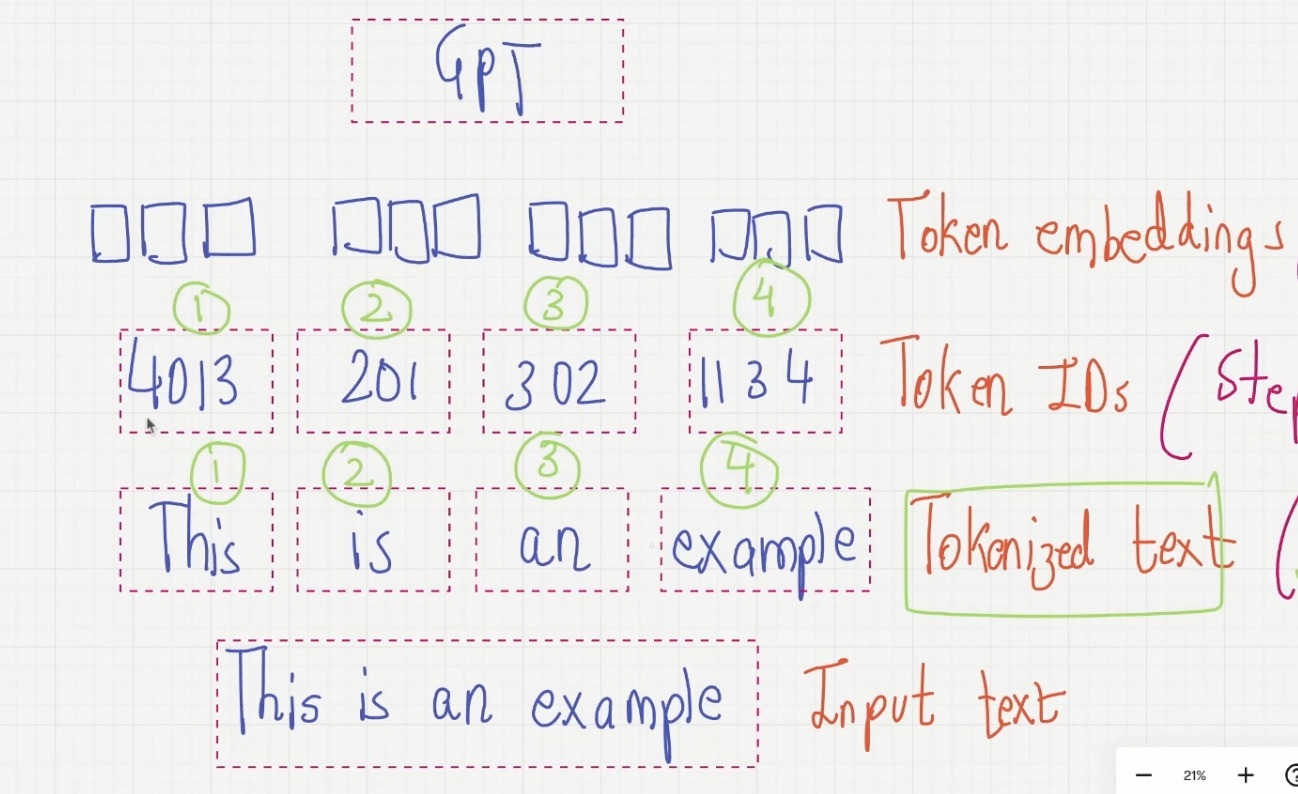 GPT
Token embeddings
1 2 3 4
4013 201 302 1134 Token IDs (Step
1 2 3 4
This is an example Tokenized text (
This is an example Input text
21%